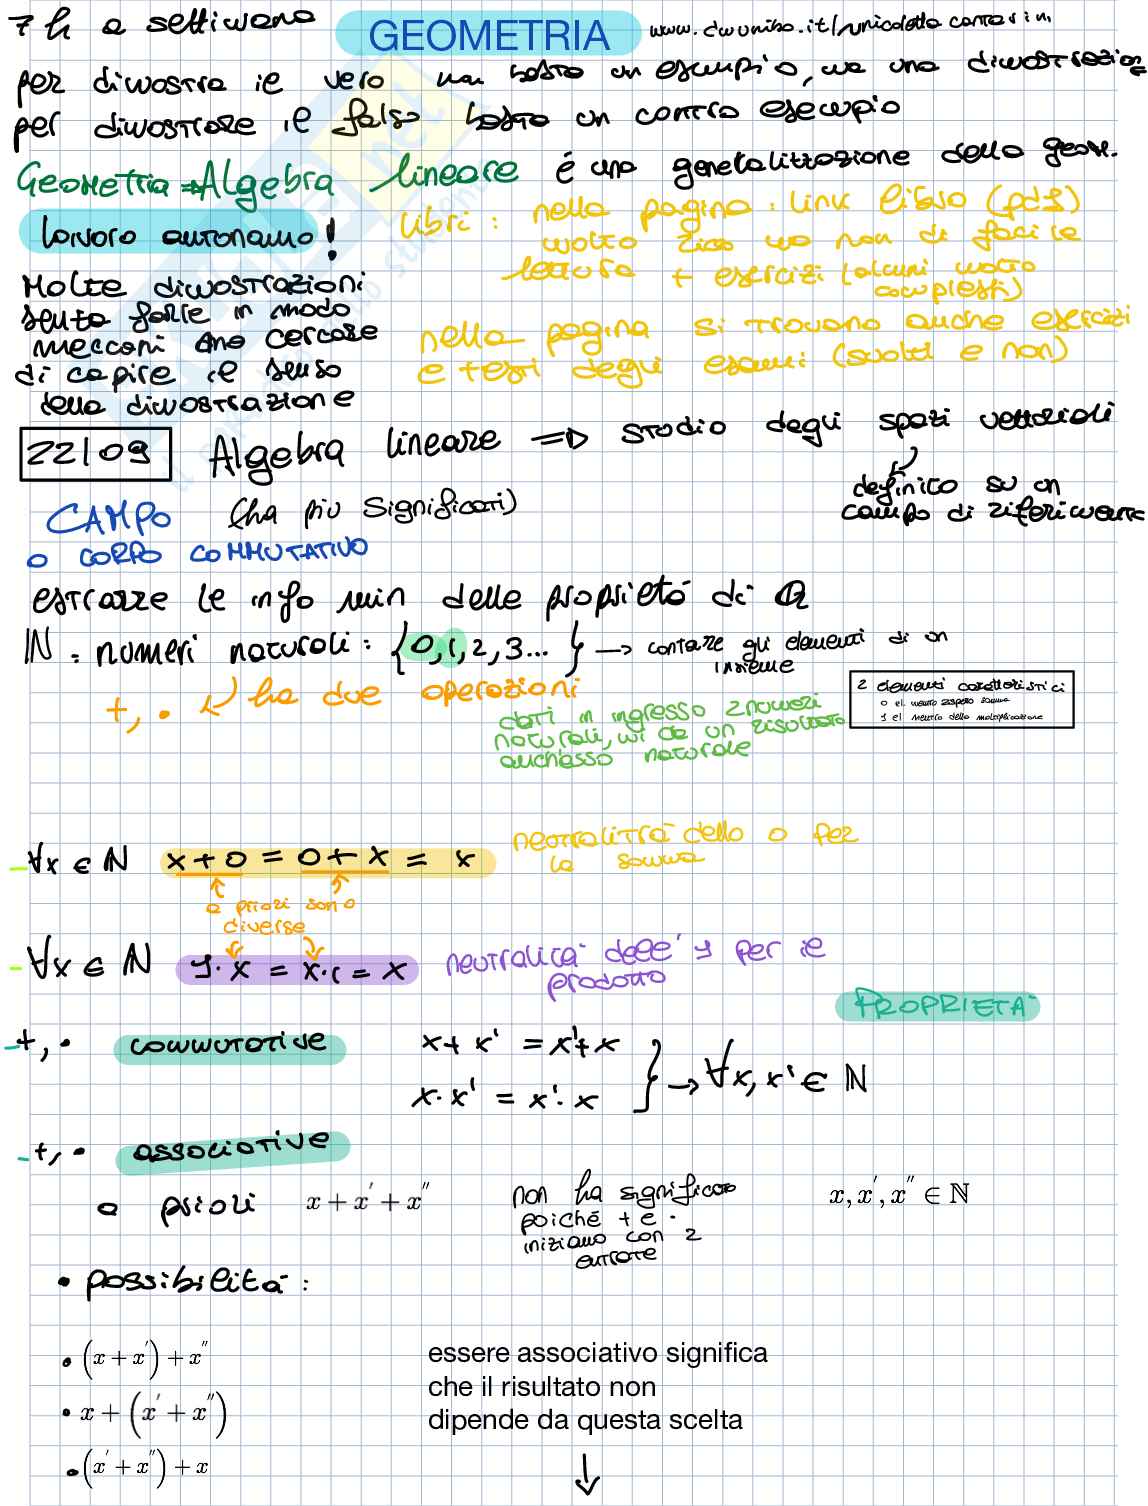 7 h a settimana GEOMETRIA
per dimostra ie vero non basta un esempio, ma una dimostrazione
per dimostrare ie falso basta un contro esempio
Geometria ⇒ Algebra lineare é una generalizzazione della geom.
lavoro autonomo!
libri: nella pagina: link libro (pdf)
molto ma non di facile
lettura + esercizi (alcuni molto
complessi)
Molte dimostrazioni
senza farle in modo
meccani ma cercare
di capire ie senso
della dimostrazione
nella pagina si trovano anche esercizi
e testi degli esami (svolti e non)
22/09 Algebra lineare ⇒ studio degli spazi vettoriali
definito su un
campo di riferimento
CAMPO (ha più significati)
o CORPO COMMUTATIVO
estrarre le info min delle proprietá di Q
ℕ = numeri naturali: {0,1,2,3...} → contare gli elementi di un
insieme
+, · ha due operazioni
dati in ingresso 2 numeri
naturali, mi da un risultato
anch'esso naturale
2 elementi caratteristici
0 el. neutro rispetto somma
1 el neutro della moltiplicazione
-∀x ∈ ℕ x+0 = 0+x = x neutralità dello 0 per
la somma
a priori sono
diverse
-∀x ∈ ℕ 1·x = x·1 = x neutralità dell'1 per ie
prodotto
PROPRIETA'
-+, · commutative x+x' = x'+x
x·x' = x'·x } → ∀x, x' ∈ ℕ
-+, · associative
a priori x + x' + x'' non ha significato
poiché + e ·
iniziano con 2
entrate
x, x', x'' ∈ ℕ
• possibilitá:
• (x + x') + x''
• x + (x' + x'')
• (x' + x'') + x
essere associativo significa
che il risultato non
dipende da questa scelta
↓